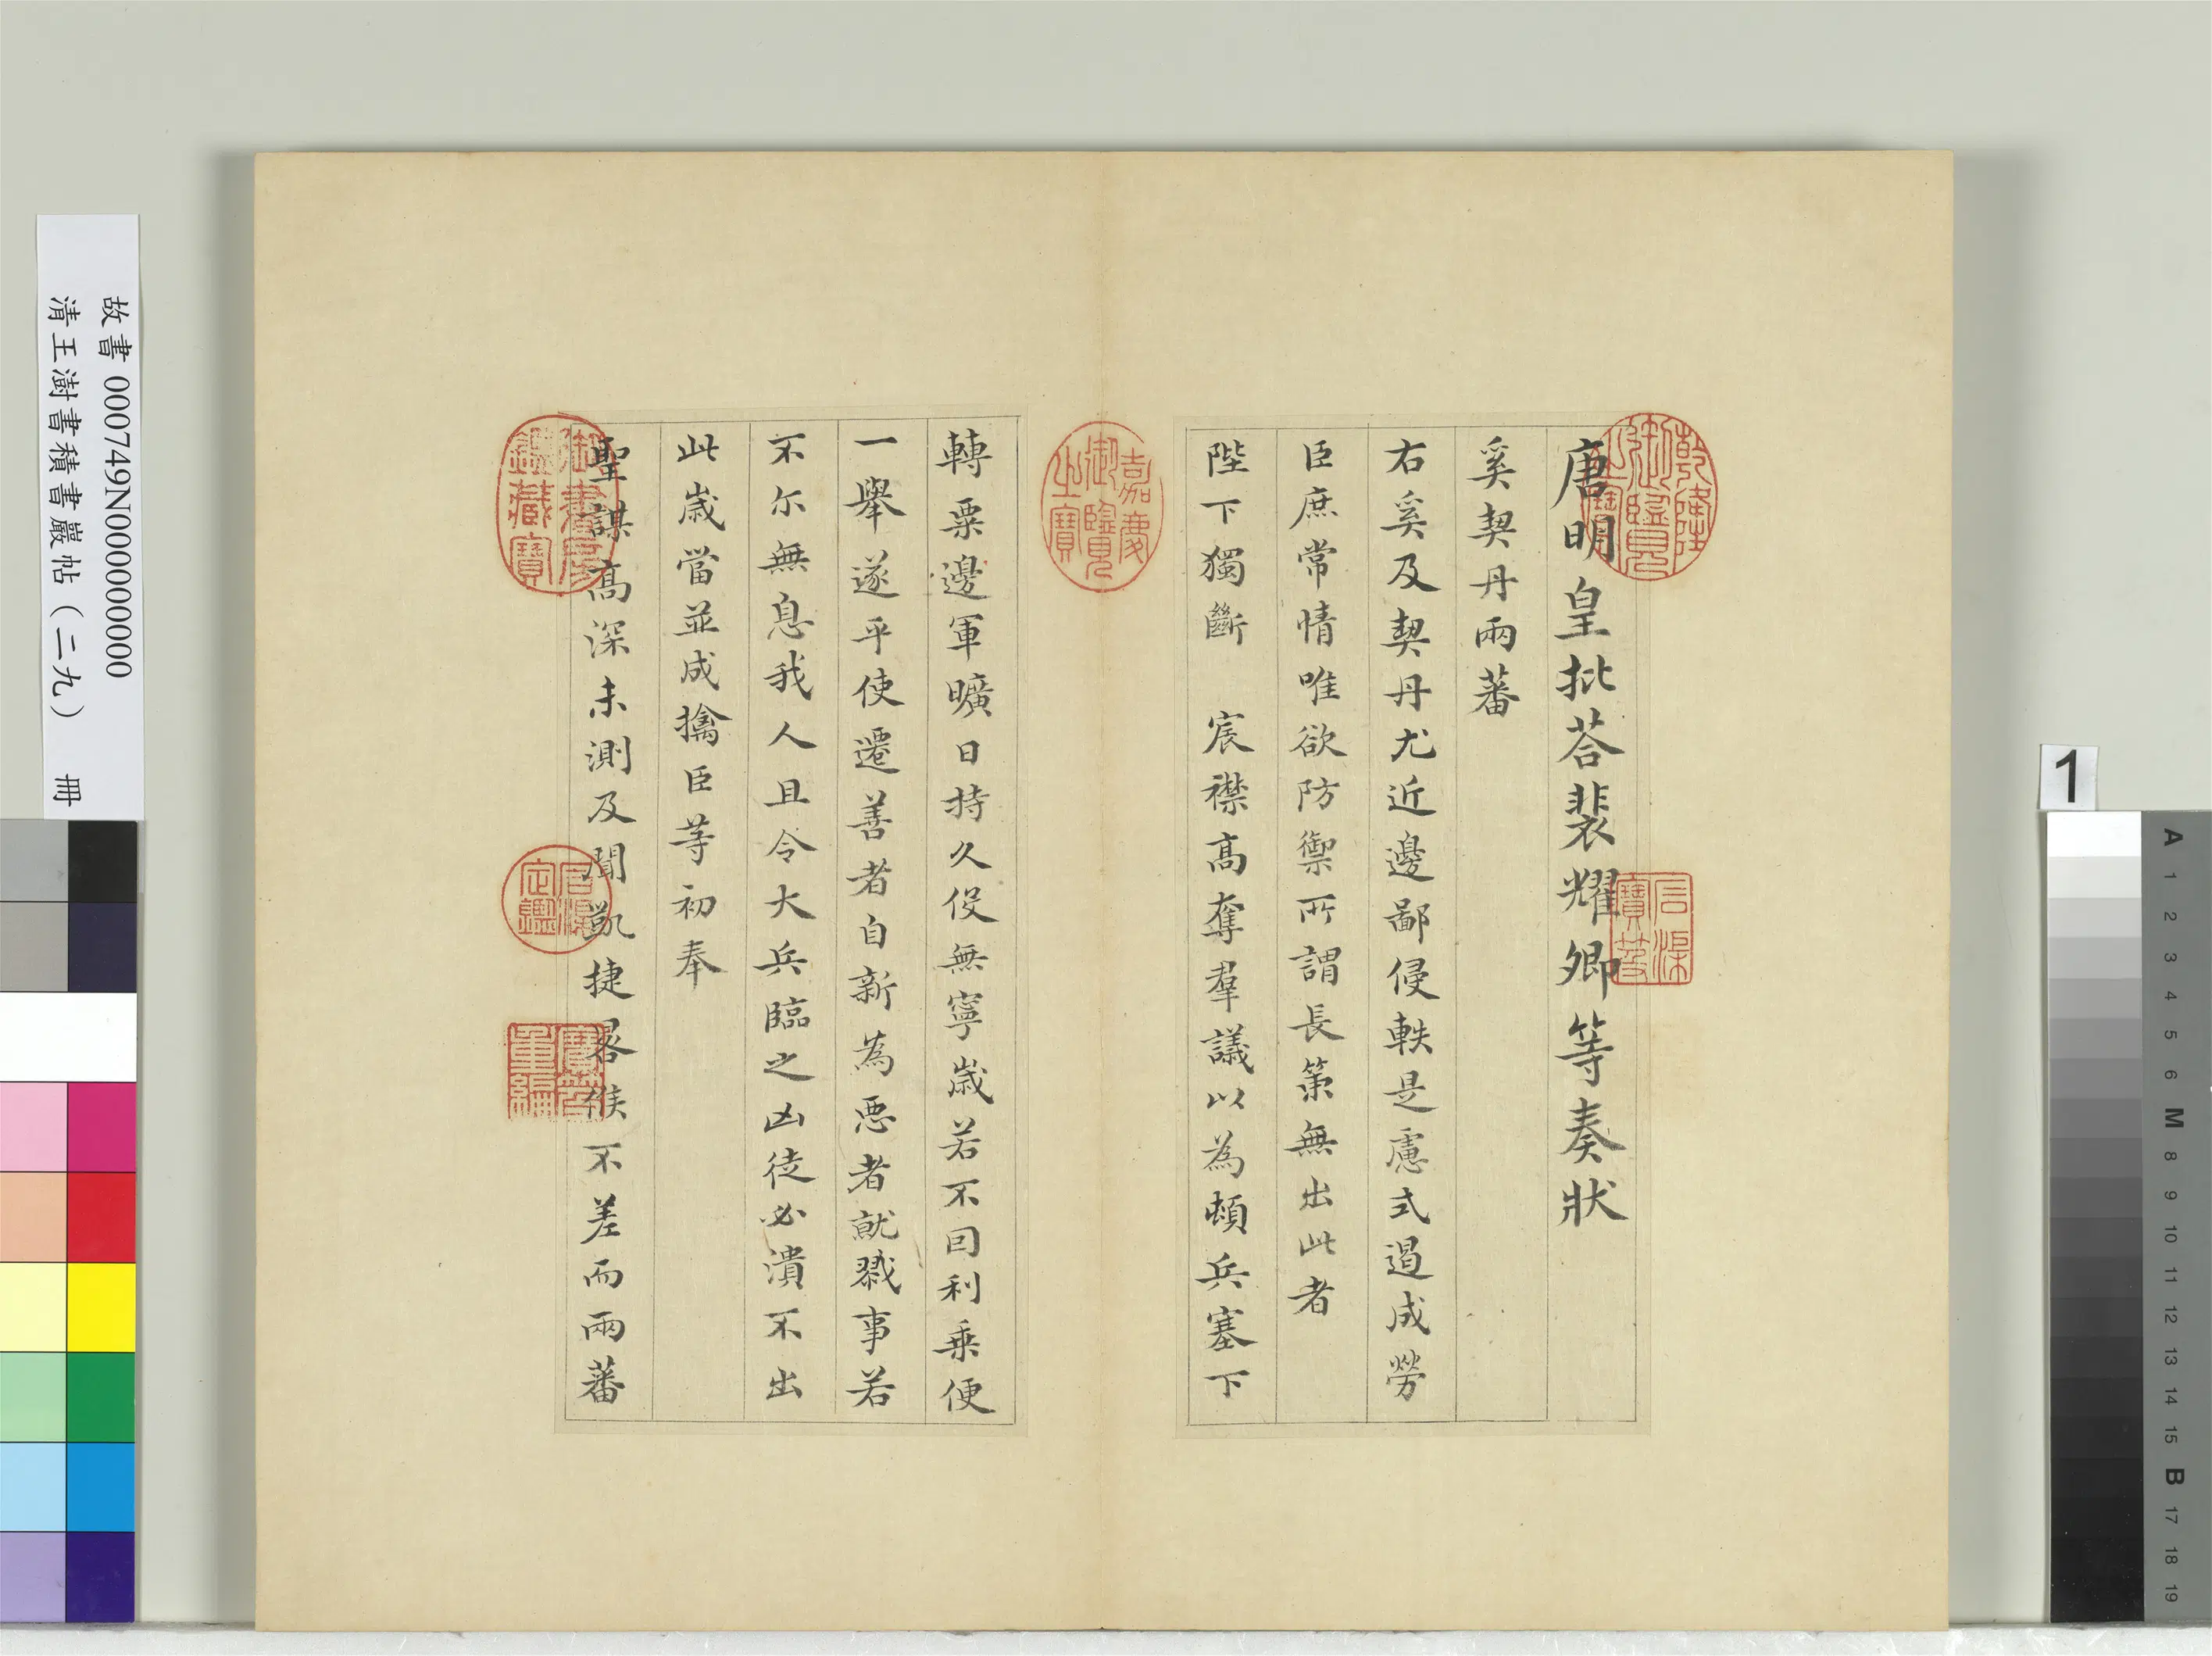 唐明皇批荅裴耀卿等奏狀
奚契丹兩蕃
右奚及契丹尤近邊鄙侵軼是慮式遏成勞
臣庶常情唯欲防禦所謂長策無出此者
陛下獨斷 宸襟高奪羣議以為頓兵塞下
轉粟邊軍曠日持久役無寧歲若不回利乗便
一舉遂平使遷善者自新為惡者就戮事若
不尔無息我人且令大兵臨之凶徒必潰不出
此歲當並成擒臣等初奉
聖謀高深未測及聞凱捷晷候不差而兩蕃
乾隆御覽之寶
石渠寶笈
嘉慶御覽之寶
御書房鑑藏寶
石渠定鑑
寶笈重編
故書 000749N000000000
清王澍書積書巖帖（二九） 冊
1
A 1 2 3 4 5 6 M 8 9 10 11 12 13 14 15 B 17 18 19